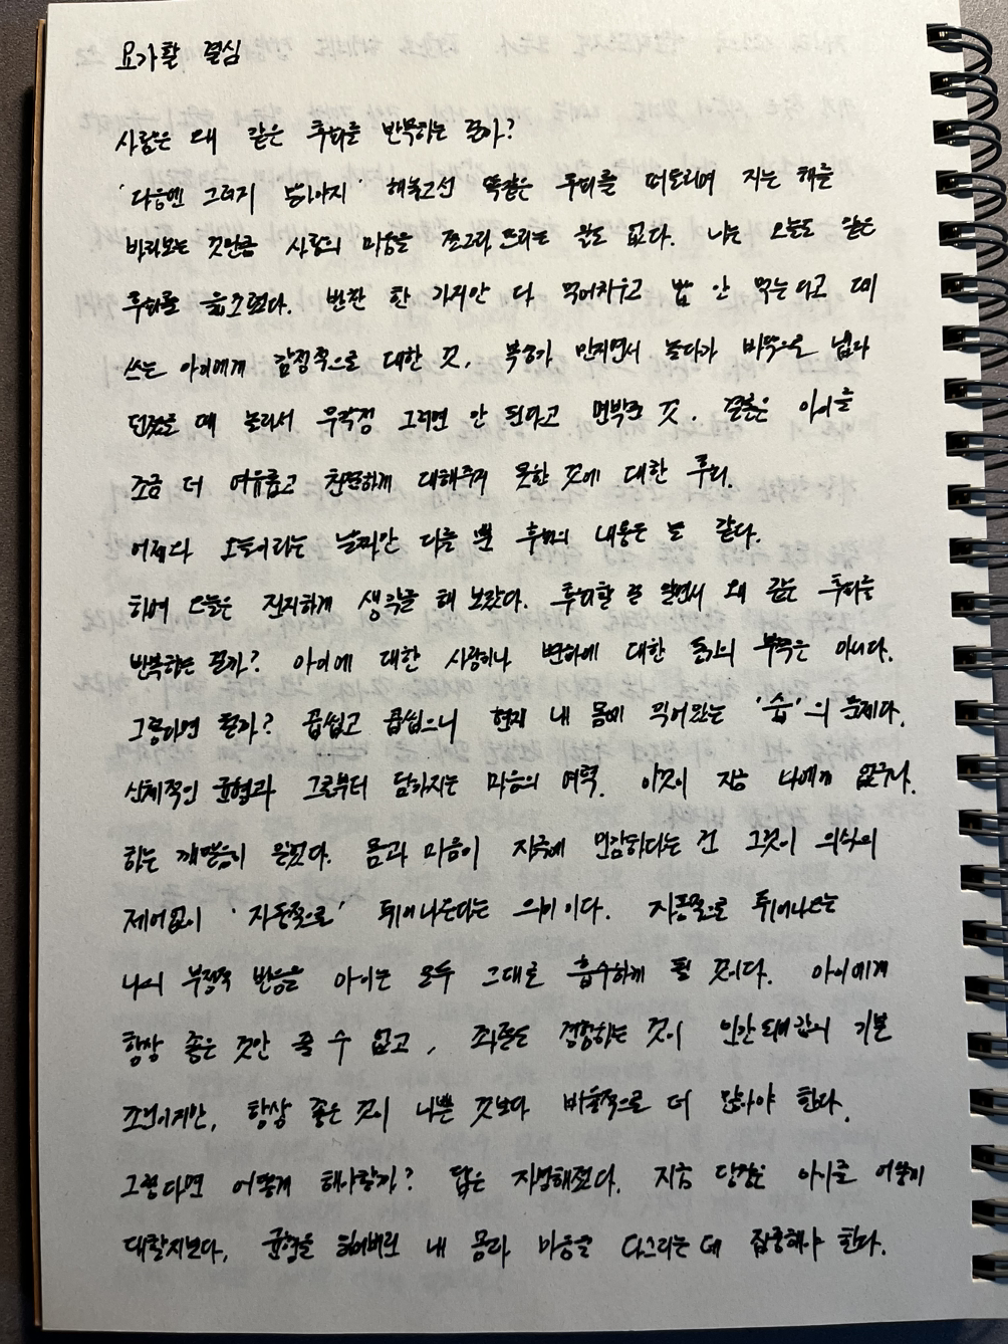 요가할 결심
사람은 왜 같은 후회를 반복하는 걸까?
'다음엔 그러지 말아야지' 해놓고선 똑같은 후회를 떠올리며 지는 해를
바라보는 것만큼 사람의 마음을 쪼그라뜨리는 일도 없다. 나는 오늘도 같은
후회를 읊조렸다. 반찬 한 가지만 다 먹어치우고 밥 안 먹는다고 떼
쓰는 아이에게 감정적으로 대한 것, 복숭아 만지면서 놀다가 바닥으로 냅다
던졌을 때 놀라서 무작정 그러면 안 된다고 면박준 것. 결론은 아이를
조금 더 여유롭고 친절하게 대해주지 못한 것에 대한 후회.
어제와 오늘이라는 날짜만 다를 뿐 후회의 내용은 늘 같다.
하여 오늘은 진지하게 생각을 해 보았다. 후회할 줄 알면서 왜 같은 후회를
반복하는 걸까? 아이에 대한 사랑이나 변화에 대한 동기의 부족은 아니다.
그렇다면 뭘까? 곱씹고 곱씹으니 현재 내 몸에 익어있는 '습'의 문제다.
신체적인 균형과 그로부터 담아지는 마음의 여력. 이것이 지금 나에게 없구나.
하는 깨달음이 일었다. 몸과 마음이 자극에 민감하다는 건 그것이 의식의
제어없이 '자동적으로' 튀어나온다는 의미이다. 자동적으로 튀어나오는
나의 부정적 반응을 아이는 모두 그대로 흡수하게 될 것이다. 아이에게
항상 좋은 것만 줄 수 없고, 좌절도 경험하는 것이 인간 기본
조건이지만, 항상 좋은 것이 나쁜 것보다 비율적으로 더 많아야 한다.
그렇다면 어떻게 해야할까? 답은 자명해졌다. 지금 당장은 아이를 어떻게
대할지보다, 균형을 잃어버린 내 몸과 마음을 다스리는 데 집중해야 한다.